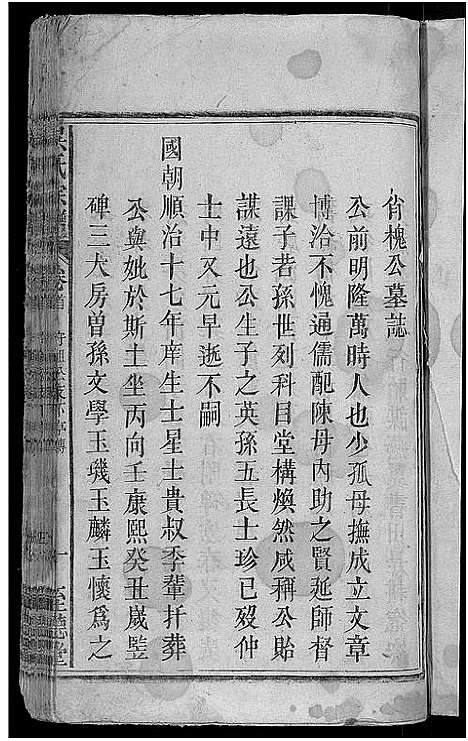 肖槐公墓誌
公前明隆萬時人也少孤母撫成立文章
博洽不愧通儒配陳母內助之賢延師督
課子若孫世列科目堂構煥然咸稱公貽
謀遠也公生子之英孫五長士珍已歿仲
士中又元早逝不嗣
國朝順治十七年庠生士星士貴叔季輩扦葬
公與妣於斯土坐丙向壬康熙癸丑嵗竪
碑三大房曽孫文學玉璣玉麟玉懷爲之
吳氏宗譜
卷首
十
至德堂